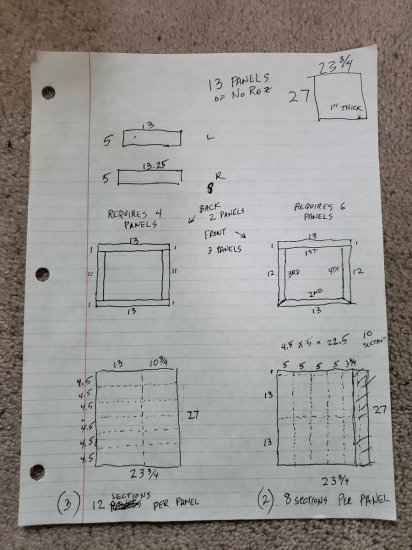 23 3/4
13 PANELS
OF NO REZ
27
1" THICK
13
5
L
13.25
5
R
8
REQUIRES 4
PANELS
BACK
2 PANELS
REQUIRES 6
PANELS
FRONT
3 PANELS
13
1 1
11 11
1 1
13
13
1 1
1ST
12 3RD 4TH 12
2ND
13
4.5 X 5 = 22.5
10
13 10 3/4
5 5 5 5 3 3/4
4.5
4.5
4.5
4.5
4.5
4.5
27
23 3/4
13
13
27
23 3/4
(3) 12 SECTIONS PER PANEL
(2) 8 SECTIONS PER PANEL